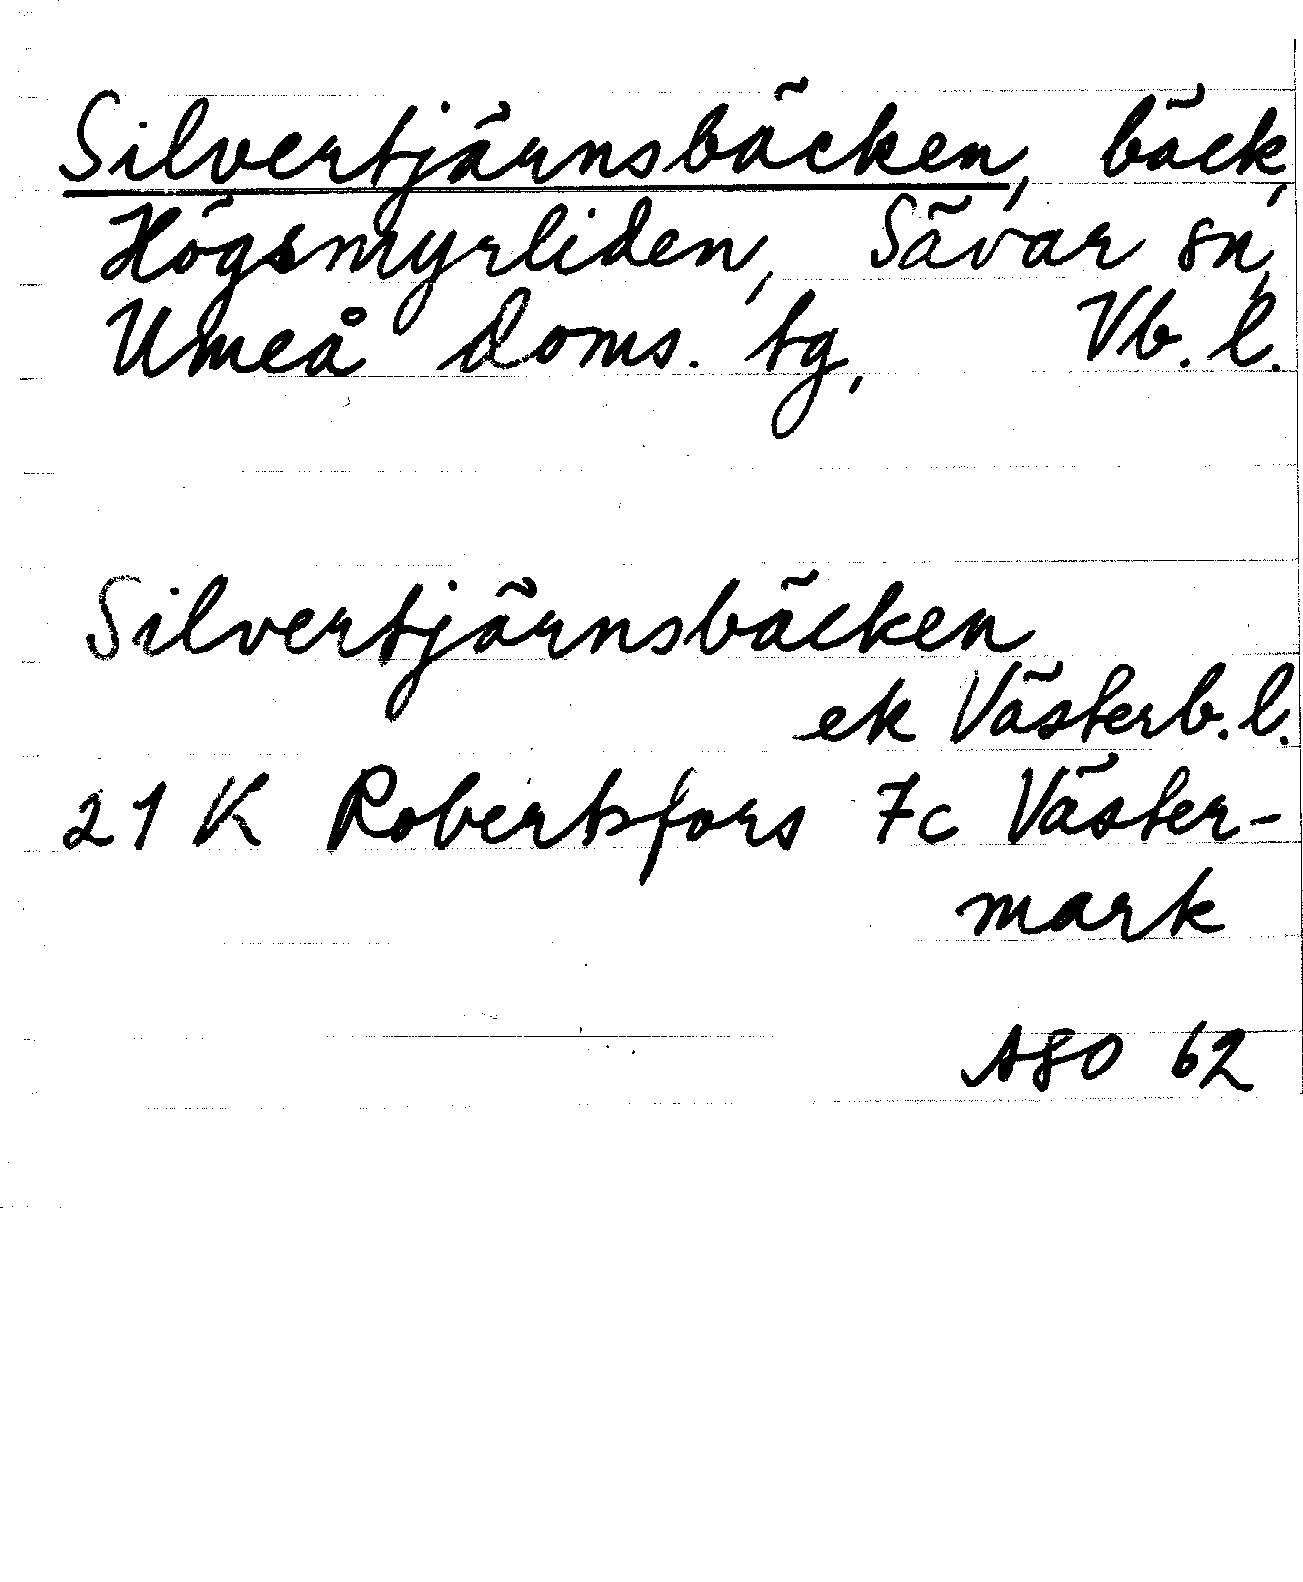 Silvertjärnsbäcken, bäck,
Högsmyrliden, Sävar sn,
Umeå doms. tg, Vb. l.
Silvertjärnsbäcken
ek Västerb. l.
21 K Robertsfors 7c Väster-
mark
ASO 62